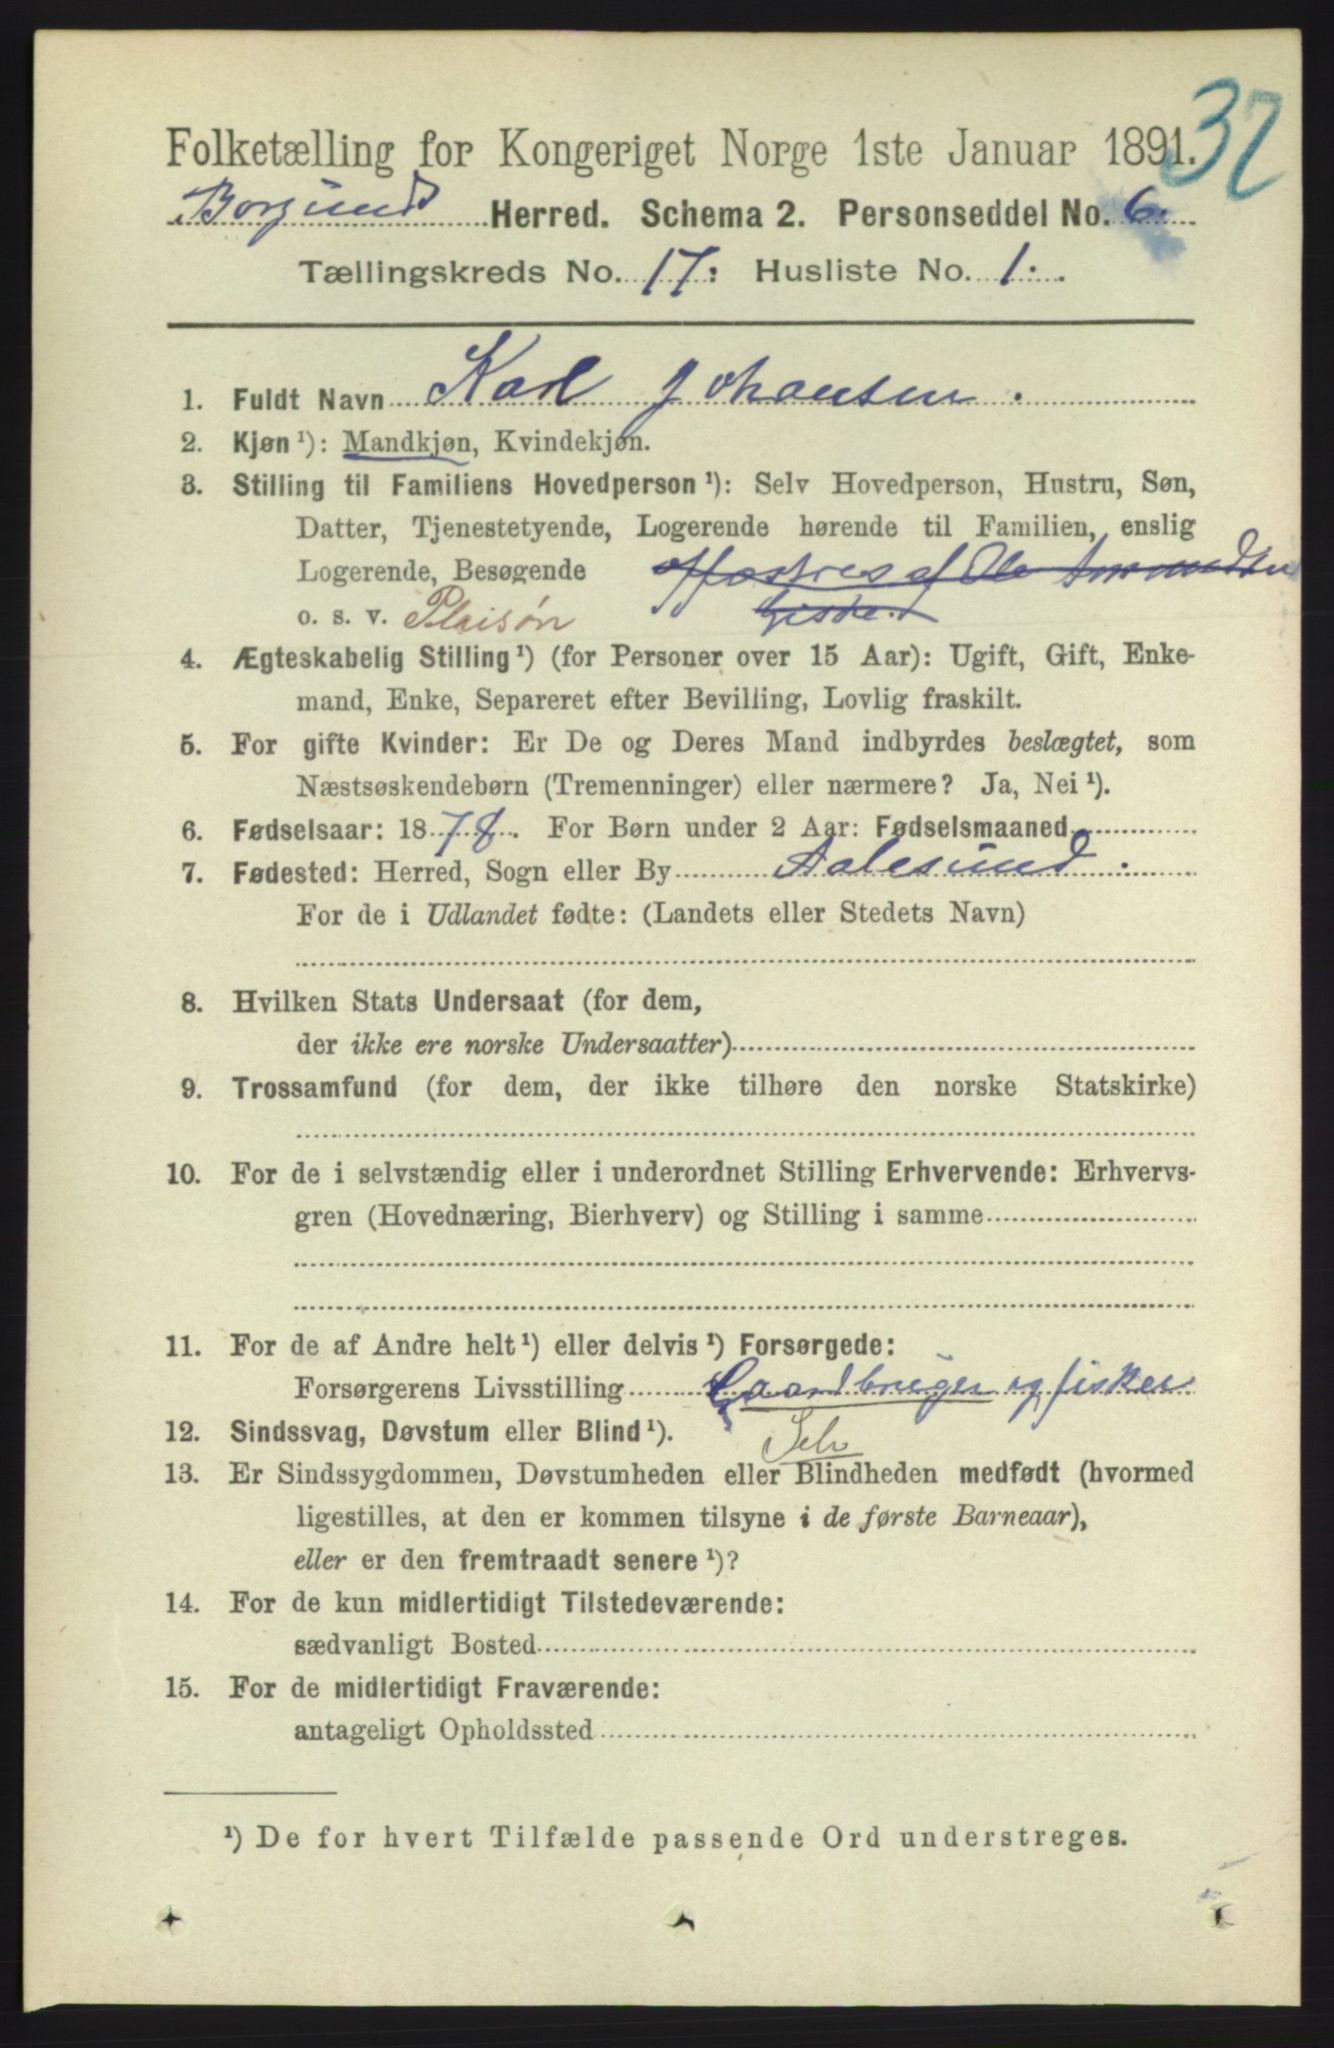 32
Folketælling for Kongeriget Norge 1ste Januar 1891.
Borgund Herred. Schema 2. Personseddel No. 6.
Tællingskreds No. 17: Husliste No. 1.
1. Fuldt Navn Karl Johansen.
2. Kjøn ¹): Mandkjøn, Kvindekjøn.
3. Stilling til Familiens Hovedperson ¹): Selv Hovedperson, Hustru, Søn,
Datter, Tjenestetyende, Logerende hørende til Familien, enslig
Logerende, Besøgende Opfostres af Ole
o. s. v. Pleisøn Giske.
4. Ægteskabelig Stilling ¹) (for Personer over 15 Aar): Ugift, Gift, Enke-
mand, Enke, Separeret efter Bevilling, Lovlig fraskilt.
5. For gifte Kvinder: Er De og Deres Mand indbyrdes beslægtet, som
Næstsøskendebørn (Tremenninger) eller nærmere? Ja, Nei ¹).
6. Fødselsaar: 1878. For Børn under 2 Aar: Fødselsmaaned
7. Fødested: Herred, Sogn eller By Aalesund.
For de i Udlandet fødte: (Landets eller Stedets Navn)
8. Hvilken Stats Undersaat (for dem,
der ikke ere norske Undersaatter)
9. Trossamfund (for dem, der ikke tilhøre den norske Statskirke)
10. For de i selvstændig eller i underordnet Stilling Erhvervende: Erhvervs-
gren (Hovednæring, Bierhverv) og Stilling i samme
11. For de af Andre helt ¹) eller delvis ¹) Forsørgede:
Forsørgerens Livsstilling Gaardbruger og fisker
12. Sindssvag, Døvstum eller Blind ¹). Selv
13. Er Sindssygdommen, Døvstumheden eller Blindheden medfødt (hvormed
ligestilles, at den er kommen tilsyne i de første Barneaar),
eller er den fremtraadt senere ¹)?
14. For de kun midlertidigt Tilstedeværende:
sædvanligt Bosted
15. For de midlertidigt Fraværende:
antageligt Opholdssted
¹) De for hvert Tilfælde passende Ord understreges.